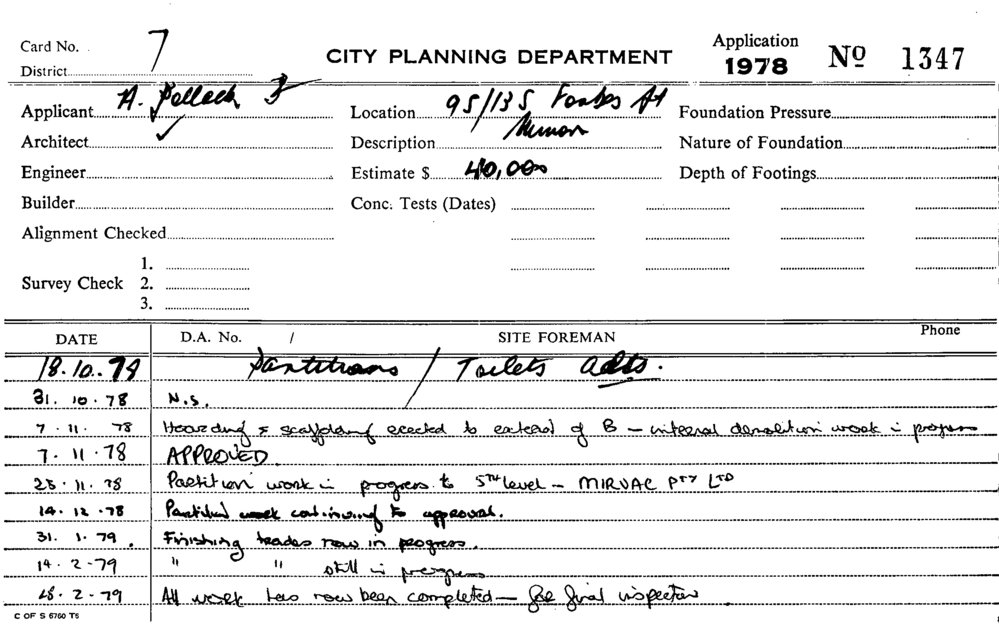 Card No. 7
CITY PLANNING DEPARTMENT
Application
1978
Nº 1347
District
Applicant A. Pollack
Location 95/135 Forbes St
Foundation Pressure
Architect ✓
Description
Nature of Foundation
Engineer
Estimate $ 40,000
Depth of Footings
Builder
Conc. Tests (Dates)
Alignment Checked
Survey Check
1.
2.
3.
DATE
D.A. No. /
SITE FOREMAN
Phone
18.10.78 Partitions / Toilets adts.
31. 10. 78 N.S.
7. 11. 78 Hoarding & scaffolding erected to exterior of B – internal demolition work in progress
7. 11. 78 APPROVED.
11. 78 Partition work in progress to 5TH level – MIRVAC PTY LTD
14. 12. 78 Partition work continuing to approval.
31. 1. 79. Finishing trades now in progress.
14. 2. 79 " " still in progress
2. 79 All work has now been completed – for final inspection
C OF S 6760 T5